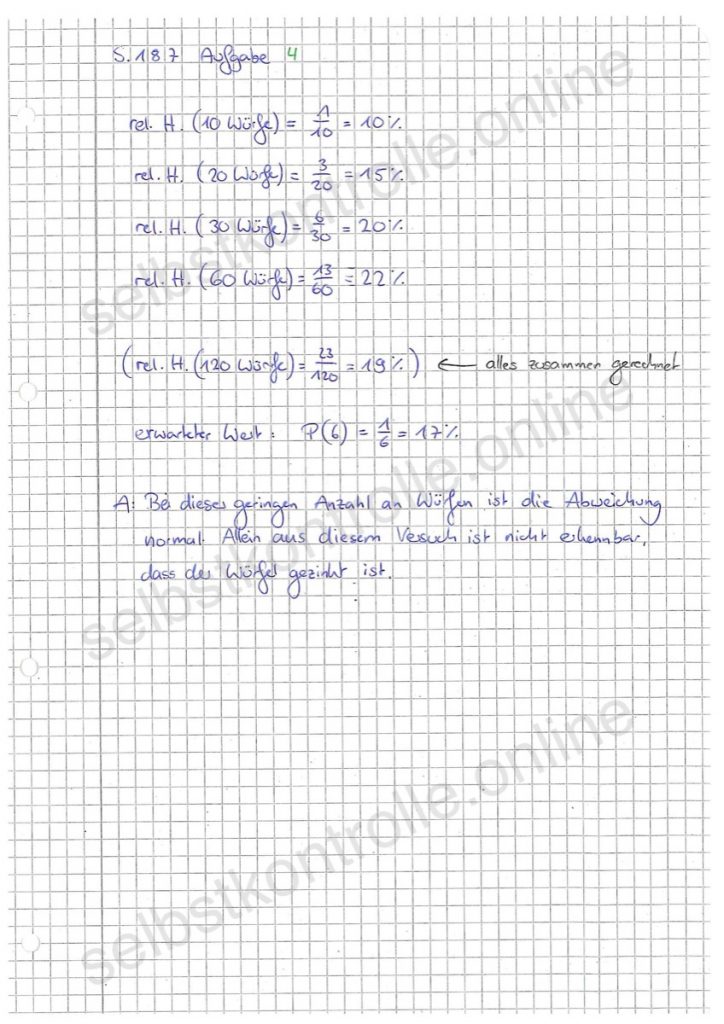 S. 187 Aufgabe 4
rel. H. (10 Würfe) = 1/10 = 10%
rel. H. (20 Würfe) = 3/20 = 15%
rel. H. (30 Würfe) = 6/30 = 20%
rel. H. (60 Würfe) = 13/60 = 22%
(rel. H. (120 Würfe) = 23/120 = 19%) ← alles zusammen gerechnet
erwarteter Wert: P(6) = 1/6 = 17%
A: Bei dieser geringen Anzahl an Würfen ist die Abweichung
normal. Allein aus diesem Versuch ist nicht erkennbar,
dass der Würfel gezinkt ist.
selbstkontrolle.online
selbstkontrolle.online
selbstkontrolle.online